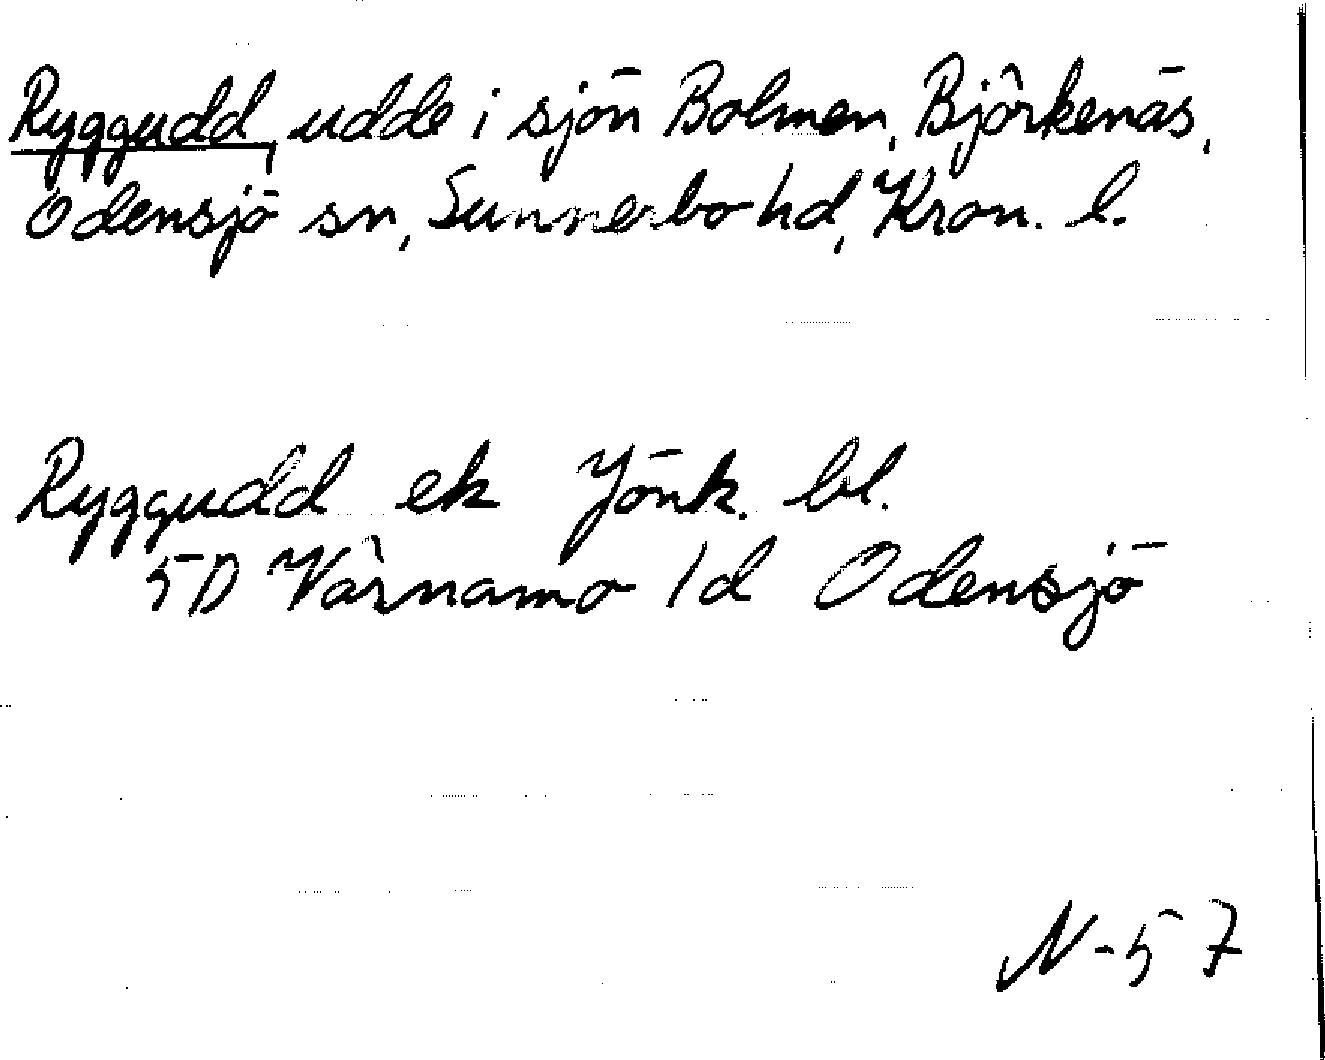 Ryggudd, udde i sjön Bolmen, Björkenäs,
Odensjö sn, Sunnerbo hd, Kron. l.
Ryggudd ek Jönk. bl.
5D Värnamo 1d Odensjö
N-57